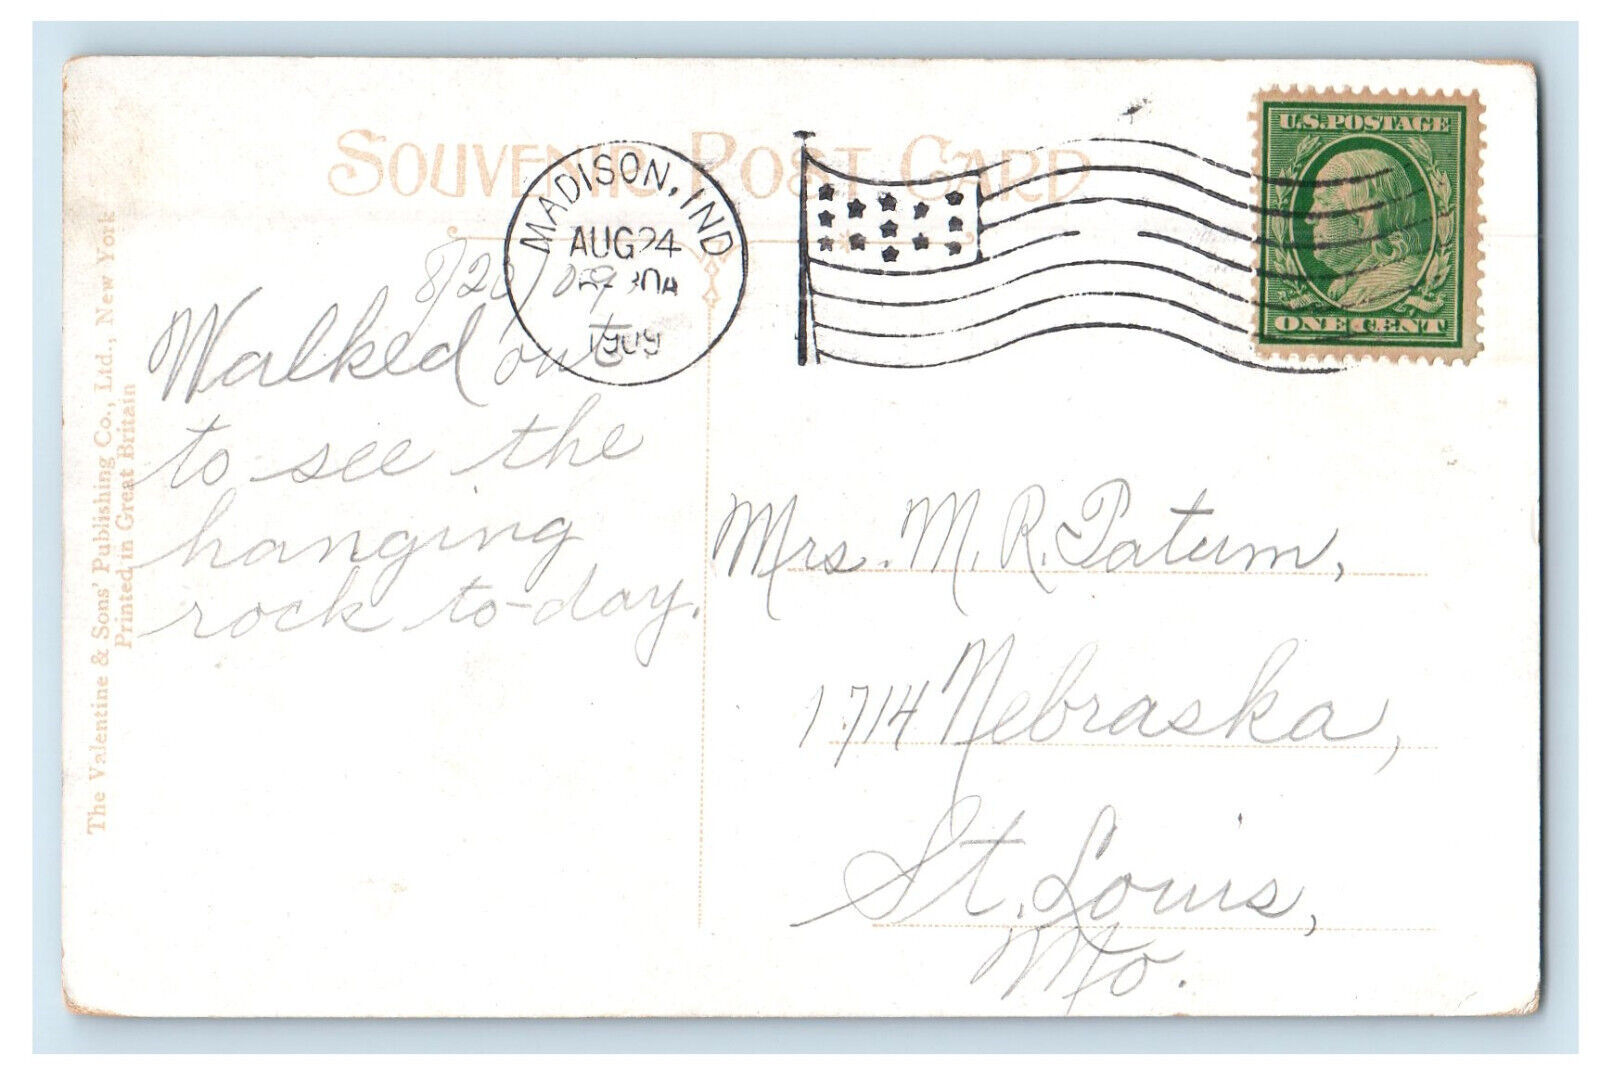 SOUVENIR POST CARD
MADISON, IND
AUG 24
30A
1909
U.S. POSTAGE
ONE CENT
The Valentine & Sons' Publishing Co., Ltd., New York
Printed in Great Britain
Walked out
to see the
hanging
rock to-day.
Mrs. M. R. Patum,
1714 Nebraska,
St. Louis,
Mo.